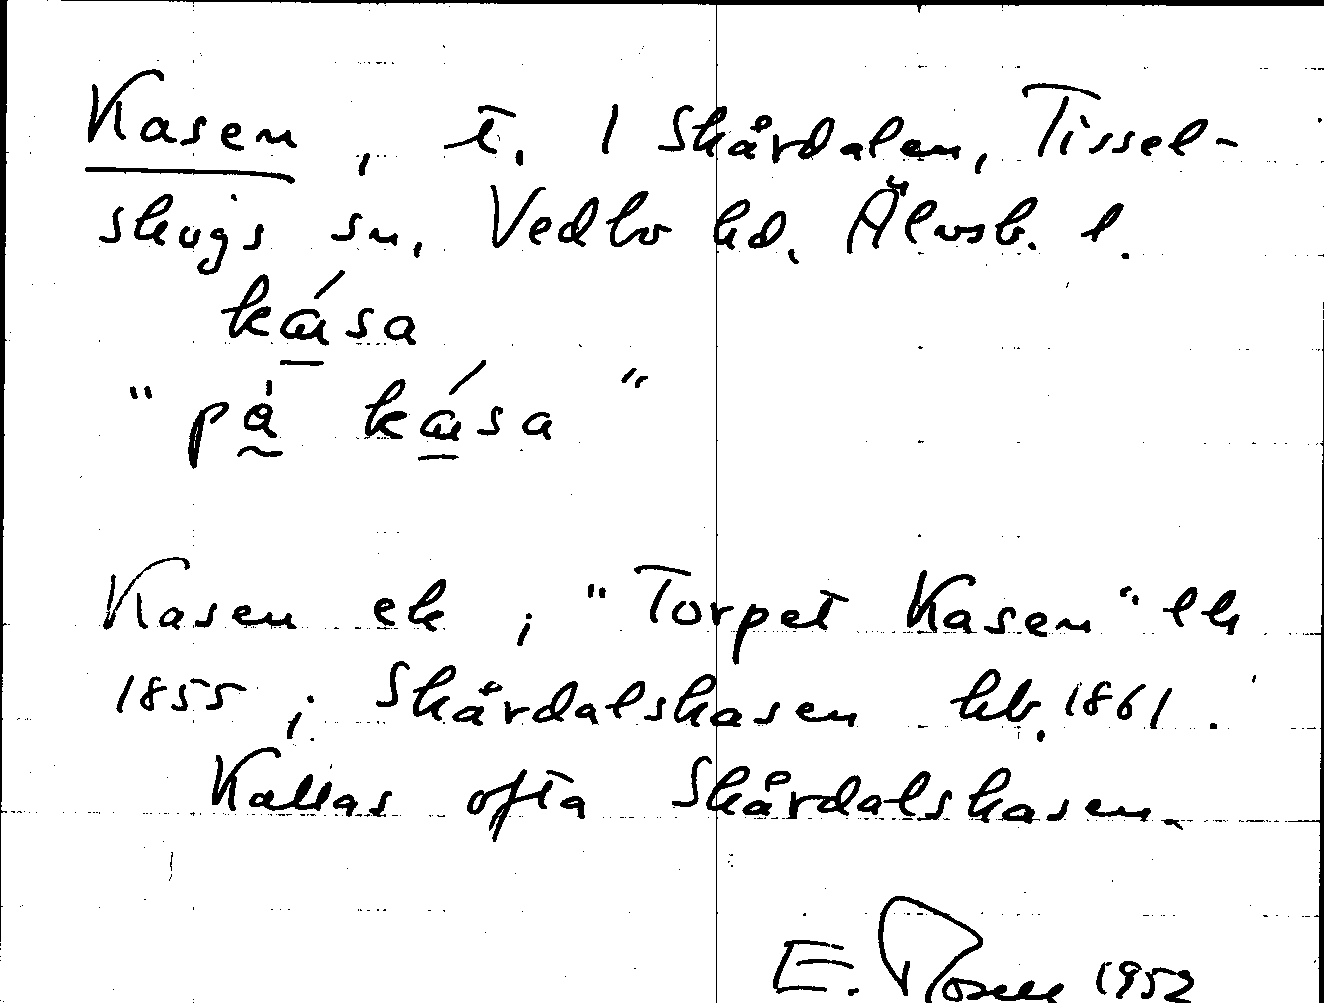 Kasen, t. 1 Skårdalen, Tissel-
skogs sn, Vedbo hd. Älvsb. l.
kása
"på kása"
Kasen ek ; "Torpet Kasen" lk
1855 ; Skårdalskasen hb. 1861.
Kallas ofta Skårdalskasen.
E. Rosell 1952